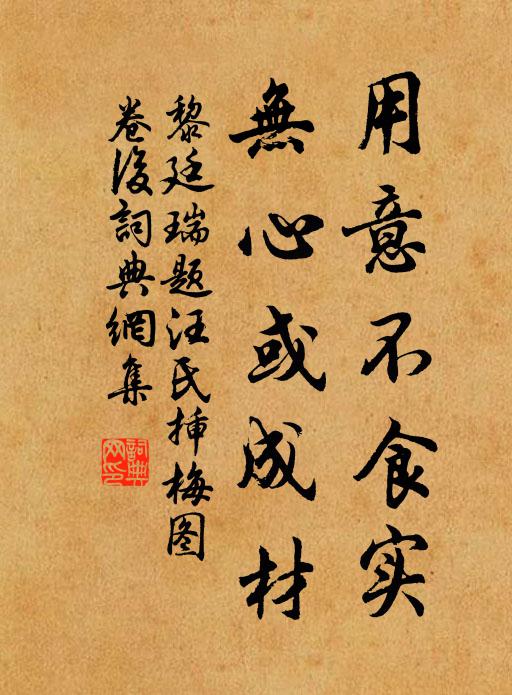 用意不食实
無心或成材
黎廷瑞题汪氏挿梅图
卷後詞典網集
詞典网印